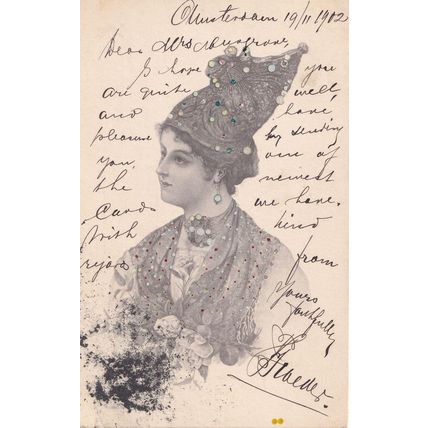 Amsterdam 19/11 1902
Dear Mrs Musgrove,
I hope you
are quite well,
and have
pleasure by sending
you, one of
the newest
Cards we have.
With kind
regards from
Yours
faithfully